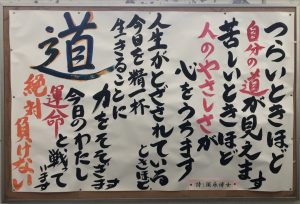 道
つらいときほど
自分の道が見えます
苦しいときほど
人のやさしさが
心をうちます
人生がとざされている
ときほど
今日を精一杯
生きることに
力をそそぎます
今日のわたし
運命と戦って
います
絶対負けない